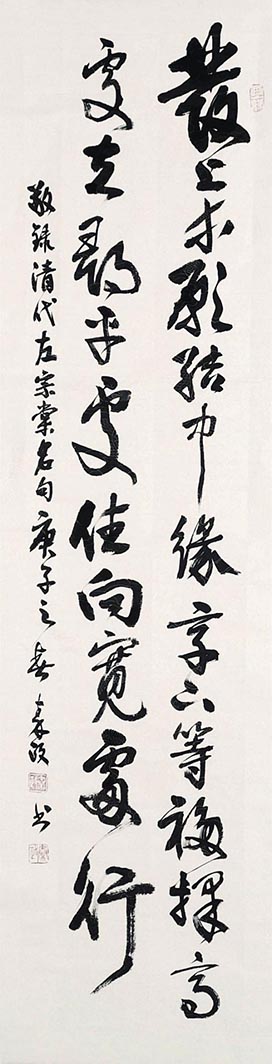 發上等願結中緣享下等福擇高
處立尋平處住向寬處行
敬錄清代左宗棠名句庚子之春書